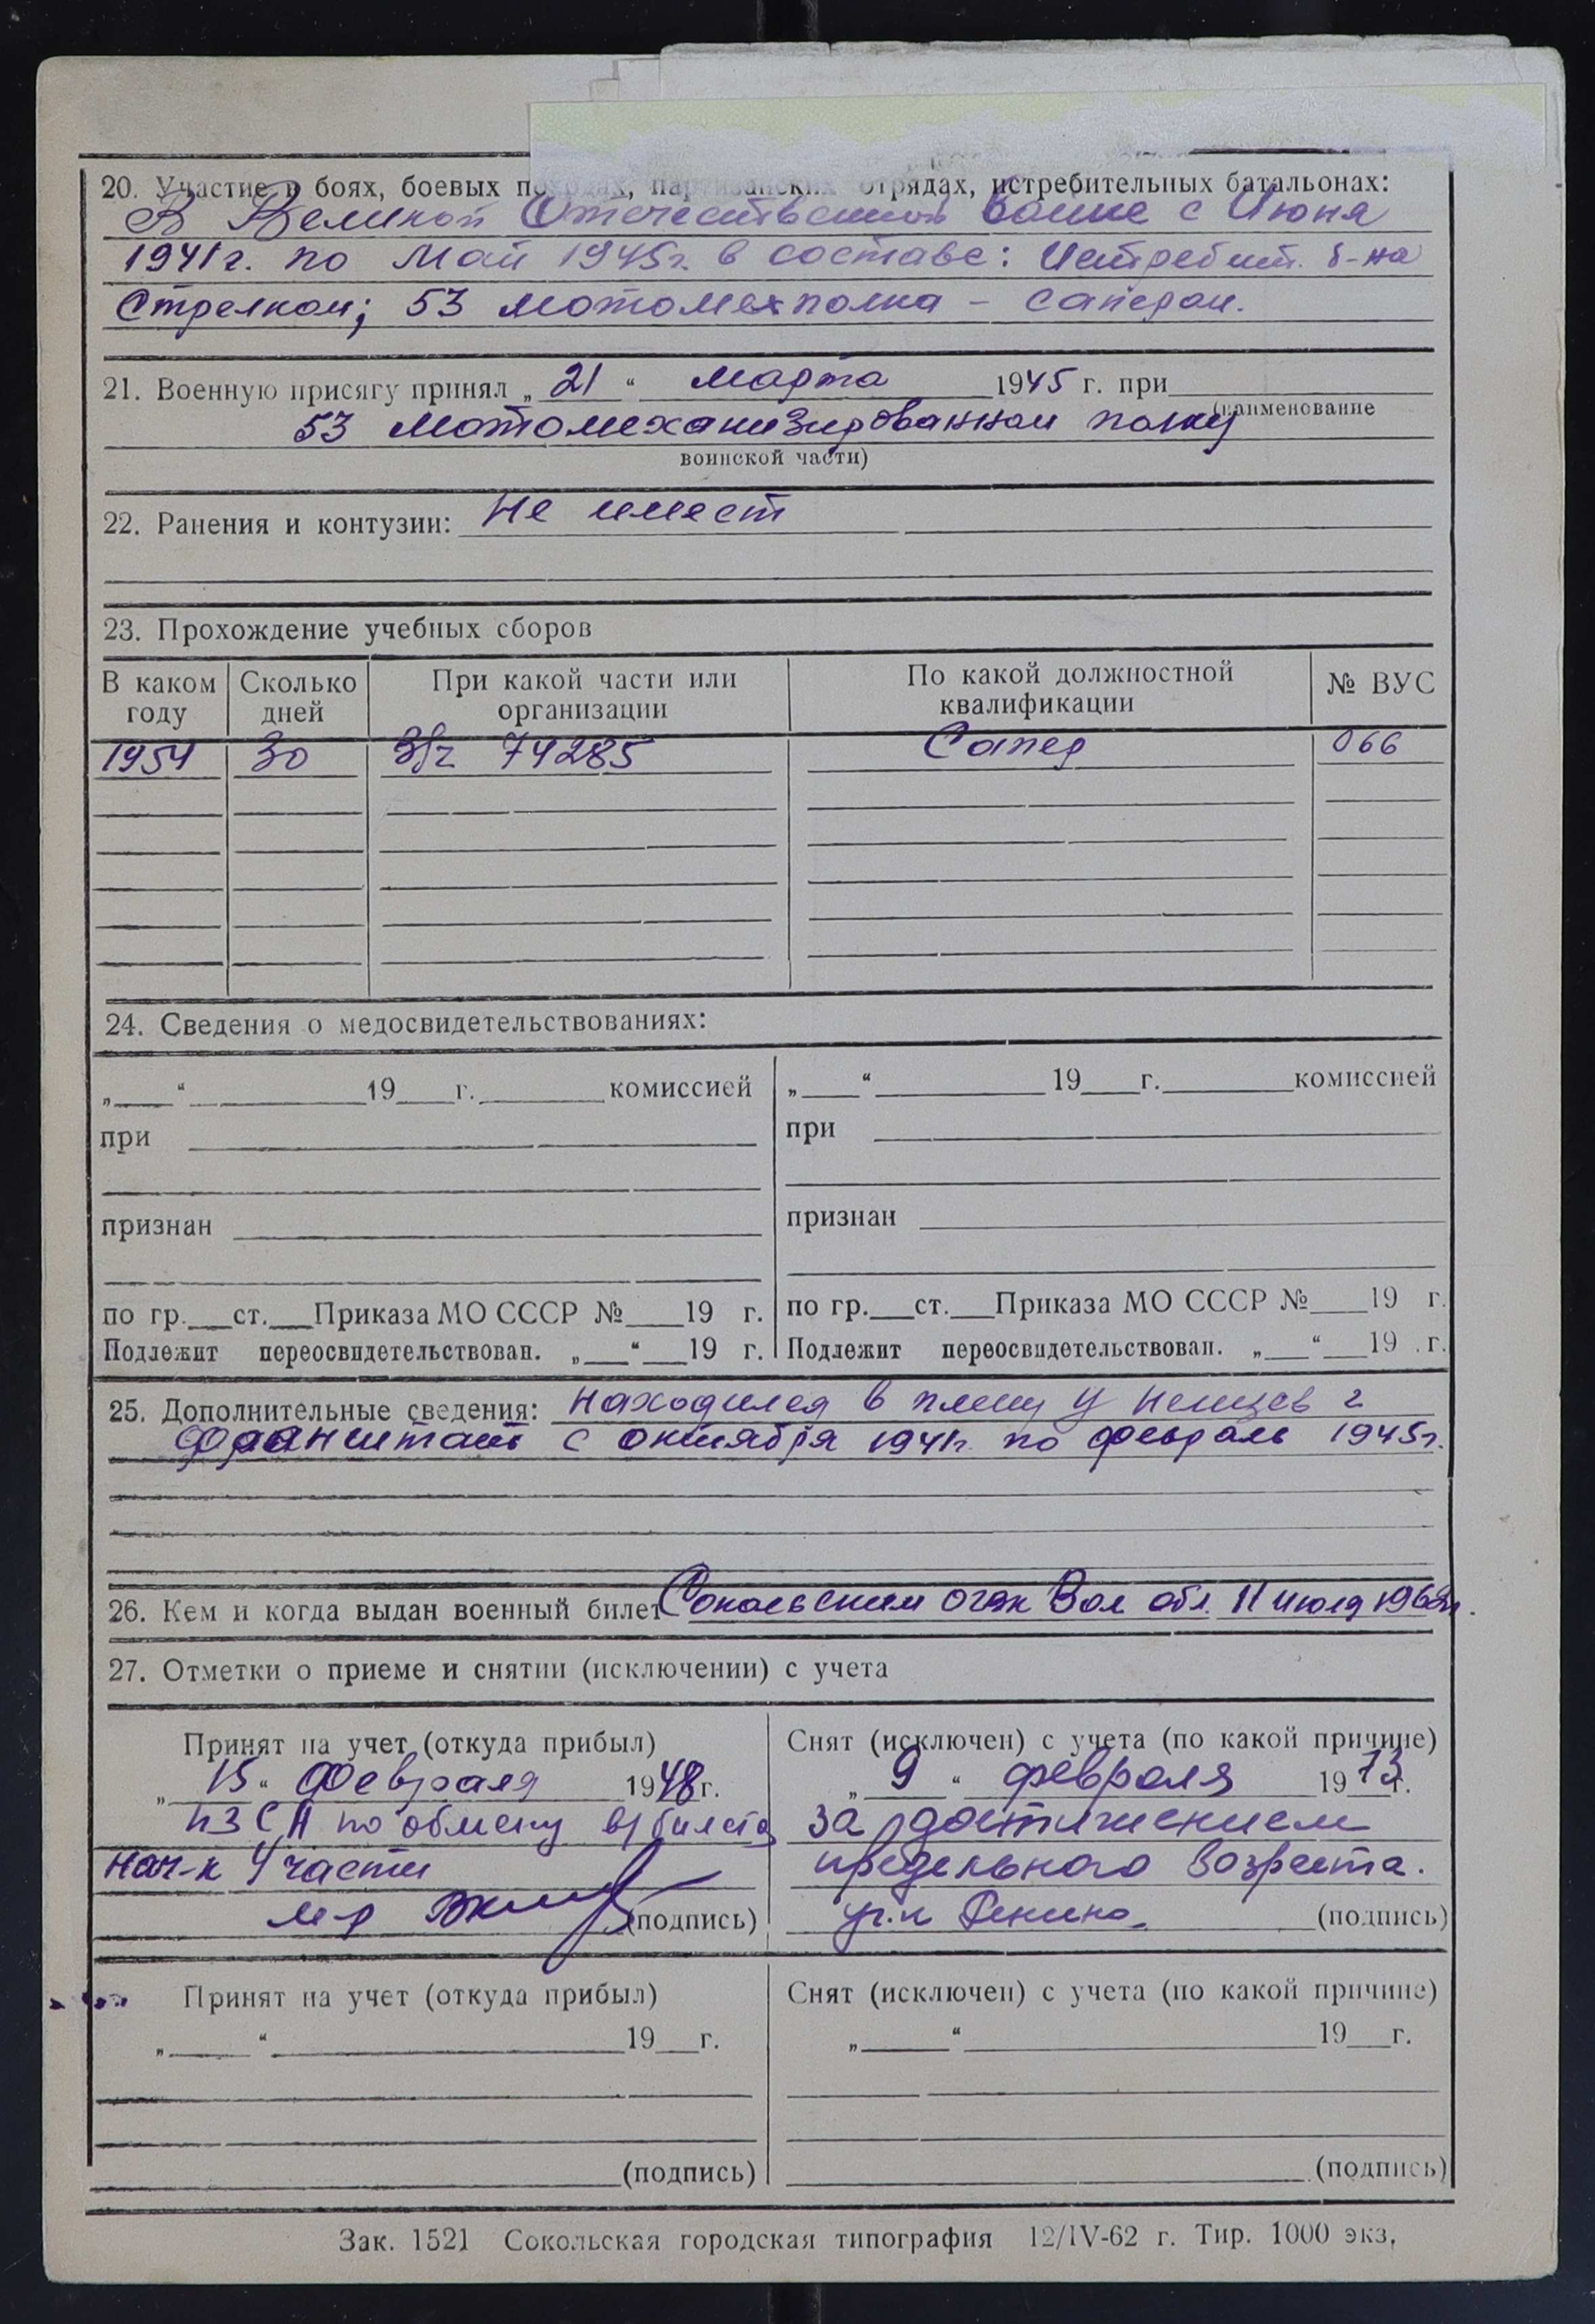 20. Участие в боях, боевых походах, партизанских отрядах, истребительных батальонах:
В Великой Отечественной войне с Июня
1941г. по Май 1945г. в составе: Истребит. б-на
Стрелком; 53 мотомехполка – сапером.
21. Военную присягу принял „ 21 “ марта 1945 г. при
(наименование
53 мотомеханизированном полку
воинской части)
22. Ранения и контузии: Не имеет
23. Прохождение учебных сборов
В каком году Сколько дней При какой части или организации По какой должностной квалификации № ВУС
1954 30 В/ч 74285 Сапер 066
24. Сведения о медосвидетельствованиях:
„ “ 19 г. комиссией „ “ 19 г. комиссией
при при
признан признан
по гр. ст. Приказа МО СССР № 19 г. по гр. ст. Приказа МО СССР № 19 г.
Подлежит переосвидетельствован. „ “ 19 г. Подлежит переосвидетельствован. „ “ 19 г.
25. Дополнительные сведения: Находился в плену у немцев г
с октября 1941г. по февраль 1945г.
26. Кем и когда выдан военный билет Сокольским Вол обл. 11 июля
27. Отметки о приеме и снятии (исключении) с учета
Принят на учет (откуда прибыл) Снят (исключен) с учета (по какой причине)
„ 15 “ Февраля 1948 г. „ 9 “ февраля 1973 г.
из СА по обмену в/билета за достижением
Нач-к 4 части предельного возраста.
м-р (подпись) (подпись)
Принят на учет (откуда прибыл) Снят (исключен) с учета (по какой причине)
„ “ 19 г. „ “ 19 г.
(подпись) (подпись)
Зак. 1521 Сокольская городская типография 12/IV-62 г. Тир. 1000 экз.